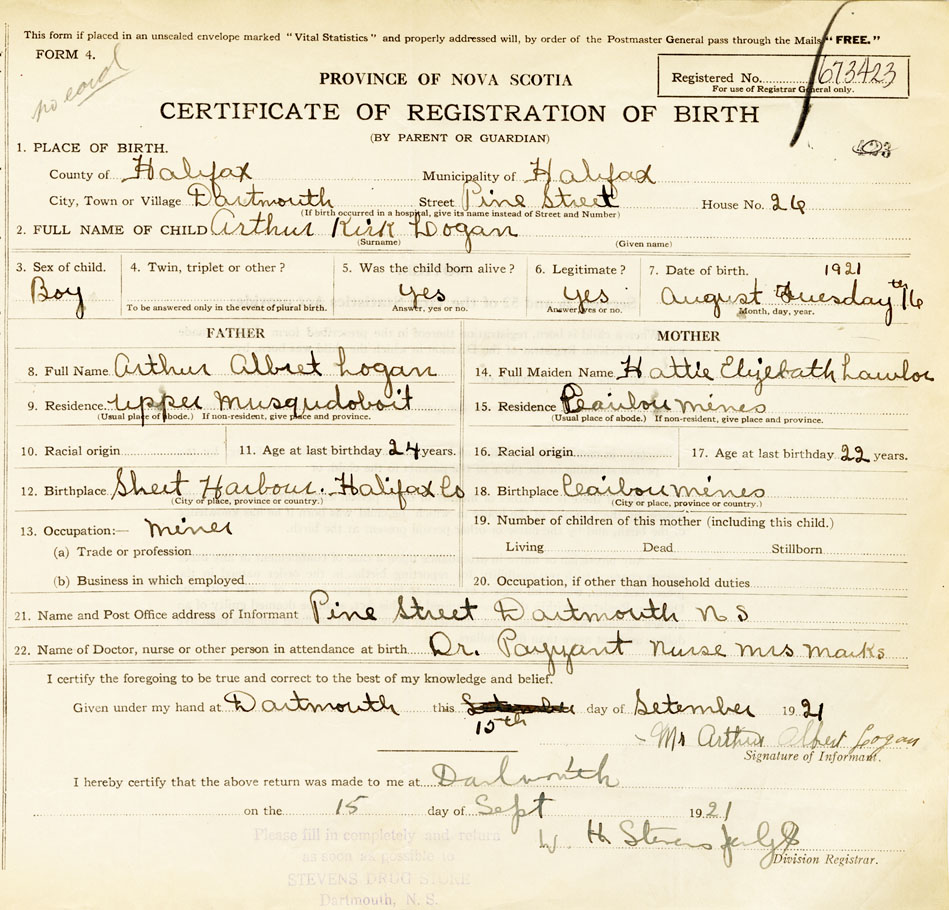 This form if placed in an unsealed envelope marked "Vital Statistics" and properly addressed will, by order of the Postmaster General pass through the Mails "FREE."
FORM 4.
no card
PROVINCE OF NOVA SCOTIA
Registered No. 673423
For use of Registrar General only.
CERTIFICATE OF REGISTRATION OF BIRTH
(BY PARENT OR GUARDIAN)
1. PLACE OF BIRTH.
County of Halifax Municipality of Halifax
City, Town or Village Dartmouth Street Pine Street House No. 26
(If birth occurred in a hospital, give its name instead of Street and Number)
2. FULL NAME OF CHILD Arthur Kirk Logan
(Surname) (Given name)
3. Sex of child. 4. Twin, triplet or other? 5. Was the child born alive? 6. Legitimate? 7. Date of birth. 1921
Boy yes yes August Tuesday th 16
To be answered only in the event of plural birth. Answer, yes or no. Answer, yes or no. Month, day, year.
FATHER MOTHER
8. Full Name Arthur Albret Logan 14. Full Maiden Name Hattie Elizebath Lawlor
9. Residence upper Musqudoboit 15. Residence Caribou mines
(Usual place of abode.) If non-resident, give place and province. (Usual place of abode.) If non-resident, give place and province.
10. Racial origin 11. Age at last birthday 24 years. 16. Racial origin 17. Age at last birthday 22 years.
12. Birthplace Sheet Harbour. Halifax Co 18. Birthplace Caribou mines
(City or place, province or country.) (City or place, province or country.)
13. Occupation:— miner 19. Number of children of this mother (including this child.)
(a) Trade or profession Living Dead Stillborn
(b) Business in which employed 20. Occupation, if other than household duties
21. Name and Post Office address of Informant Pine Street Dartmouth N S
22. Name of Doctor, nurse or other person in attendance at birth Dr. Payzant nurse mrs marks
I certify the foregoing to be true and correct to the best of my knowledge and belief.
Given under my hand at Dartmouth this 15th day of Setember 1921
Mr Arthur Albert Logan
Signature of Informant.
I hereby certify that the above return was made to me at Dartmouth
on the 15 day of Sept 1921
W. H. Stevens
Division Registrar.
Please fill in completely and return
as soon as possible to
STEVENS DRUG STORE
Dartmouth, N. S.